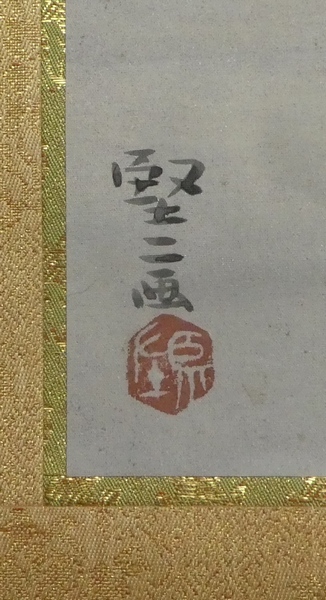 堅二画